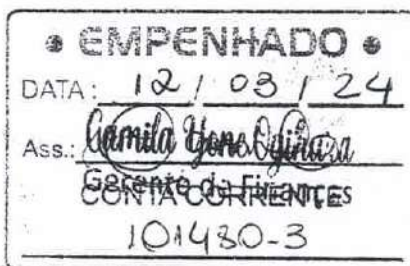 EMPENHADO
DATA: 12 / 03 / 24
Ass.: Camila Yone
Gerente de Finanças
CONTA CORRENTES
101480-3